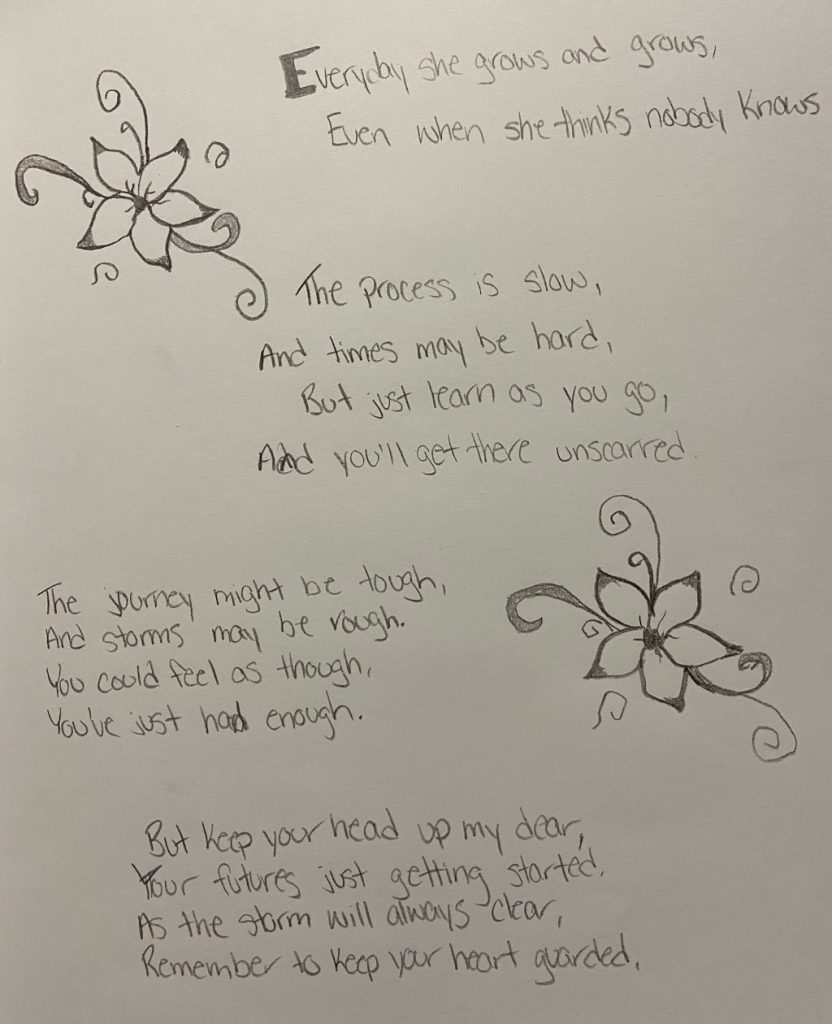 Everyday she grows and grows,
Even when she thinks nobody knows
The process is slow,
And times may be hard,
But just learn as you go,
And you'll get there unscarred.
The journey might be tough,
And storms may be rough.
You could feel as though,
You've just had enough.
But keep your head up my dear,
Your futures just getting started.
As the storm will always clear,
Remember to keep your heart guarded.